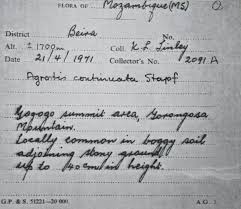 FLORA OF Mozambique (MS)
District Beira No.
Alt. ± 1700m Coll. K. L. Tinley
Date 21/4/1971 Collector's No. 2091 A
Agrostis continuata Stapf
Gogogo summit area, Gorongosa
Mountain.
Locally common in boggy soil
adjoining stony ground
up to 40cm in height.
G.P. & S. 51221—20 000. A.G. 1